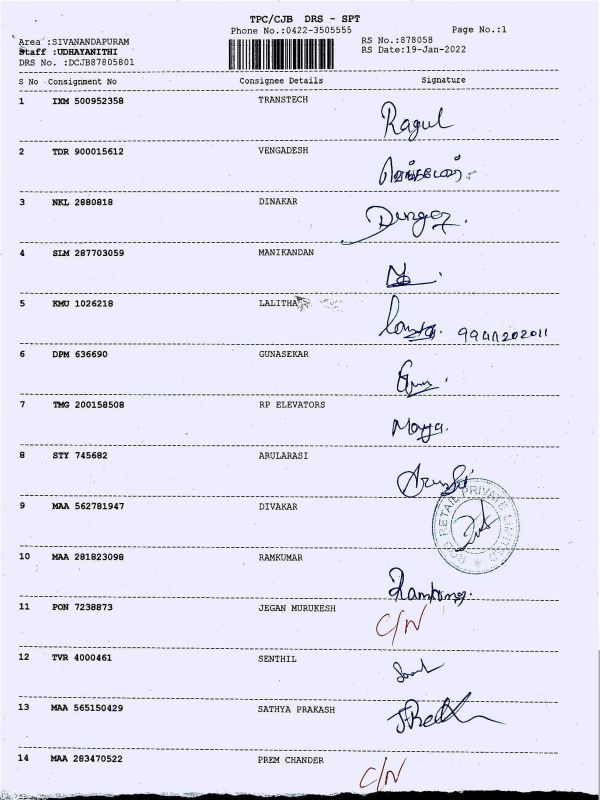 TPC/CJB DRS - SPT
Phone No.:0422-3505555 Page No.:1
Area :SIVANANDAPURAM RS No.:878058
Staff :UDHAYANITHI RS Date:19-Jan-2022
DRS No. :DCJB87805801
S No Consignment No Consignee Details Signature
1 IXM 500952358 TRANSTECH
Ragul
2 TDR 900015612 VENGADESH
3 NKL 2880818 DINAKAR
4 SLM 287703059 MANIKANDAN
5 KMU 1026218 LALITHA
6 DPM 636690 GUNASEKAR
7 TMG 200158508 RP ELEVATORS
8 STY 745682 ARULARASI
9 MAA 562781947 DIVAKAR
RETAIL PRIVATE LIMITED
10 MAA 281823098 RAMKUMAR
11 PON 7238873 JEGAN MURUKESH
C/N
12 TVR 4000461 SENTHIL
13 MAA 565150429 SATHYA PRAKASH
14 MAA 283470522 PREM CHANDER
C/N